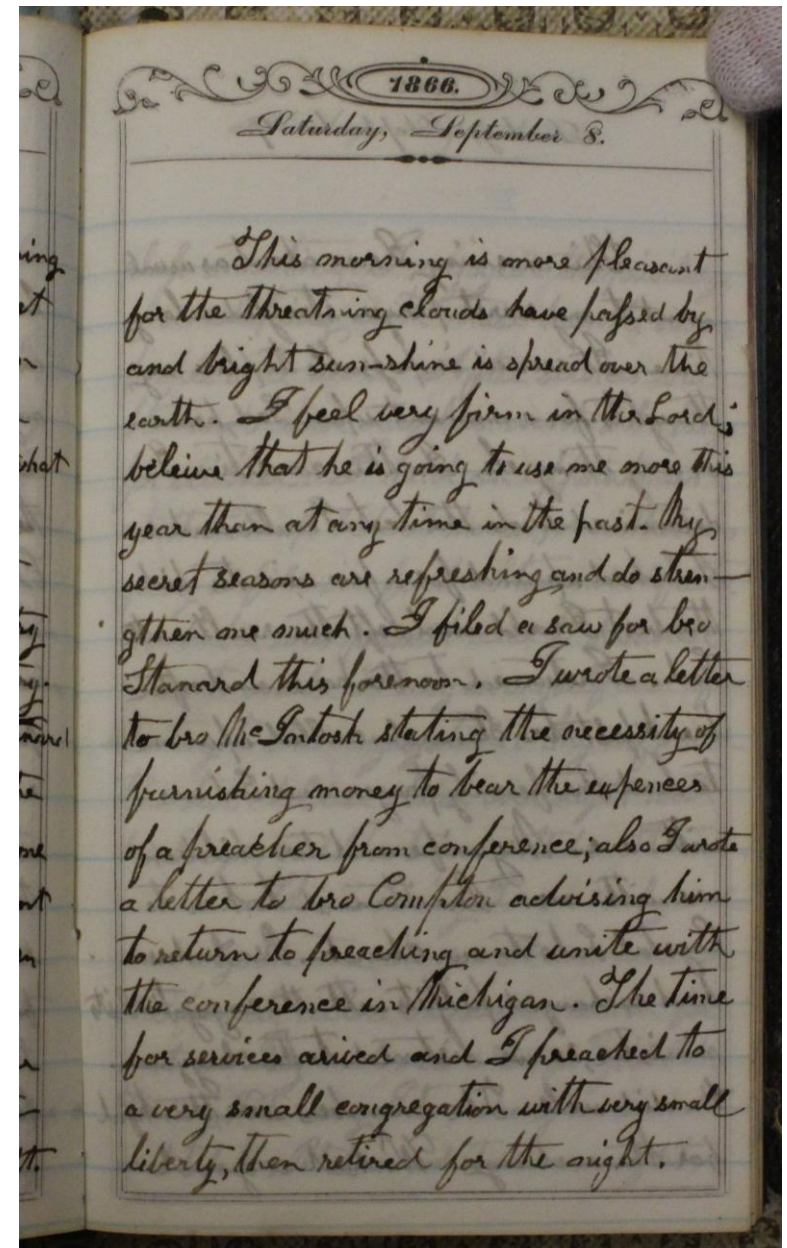 ing
et
what
ty
y.
nard
me
nt
1866.
Saturday, September 8.
This morning is more pleasant
for the threatning clouds have passed by
and bright sun-shine is spread over the
earth. I feel very firm in the Lord;
beleive that he is going to use me more this
year than at any time in the past. My
secret seasons are refreshing and do stren-
gthen me much. I filed a saw for bro
Stanard this forenoon. I wrote a letter
to bro McIntosh stating the necessity of
furnishing money to bear the expences
of a preacher from conference; also I wrote
a letter to bro Compton advising him
to return to preaching and unite with
the conference in Michigan. The time
for services arived and I preached to
a very small congregation with very small
liberty, then retired for the night.